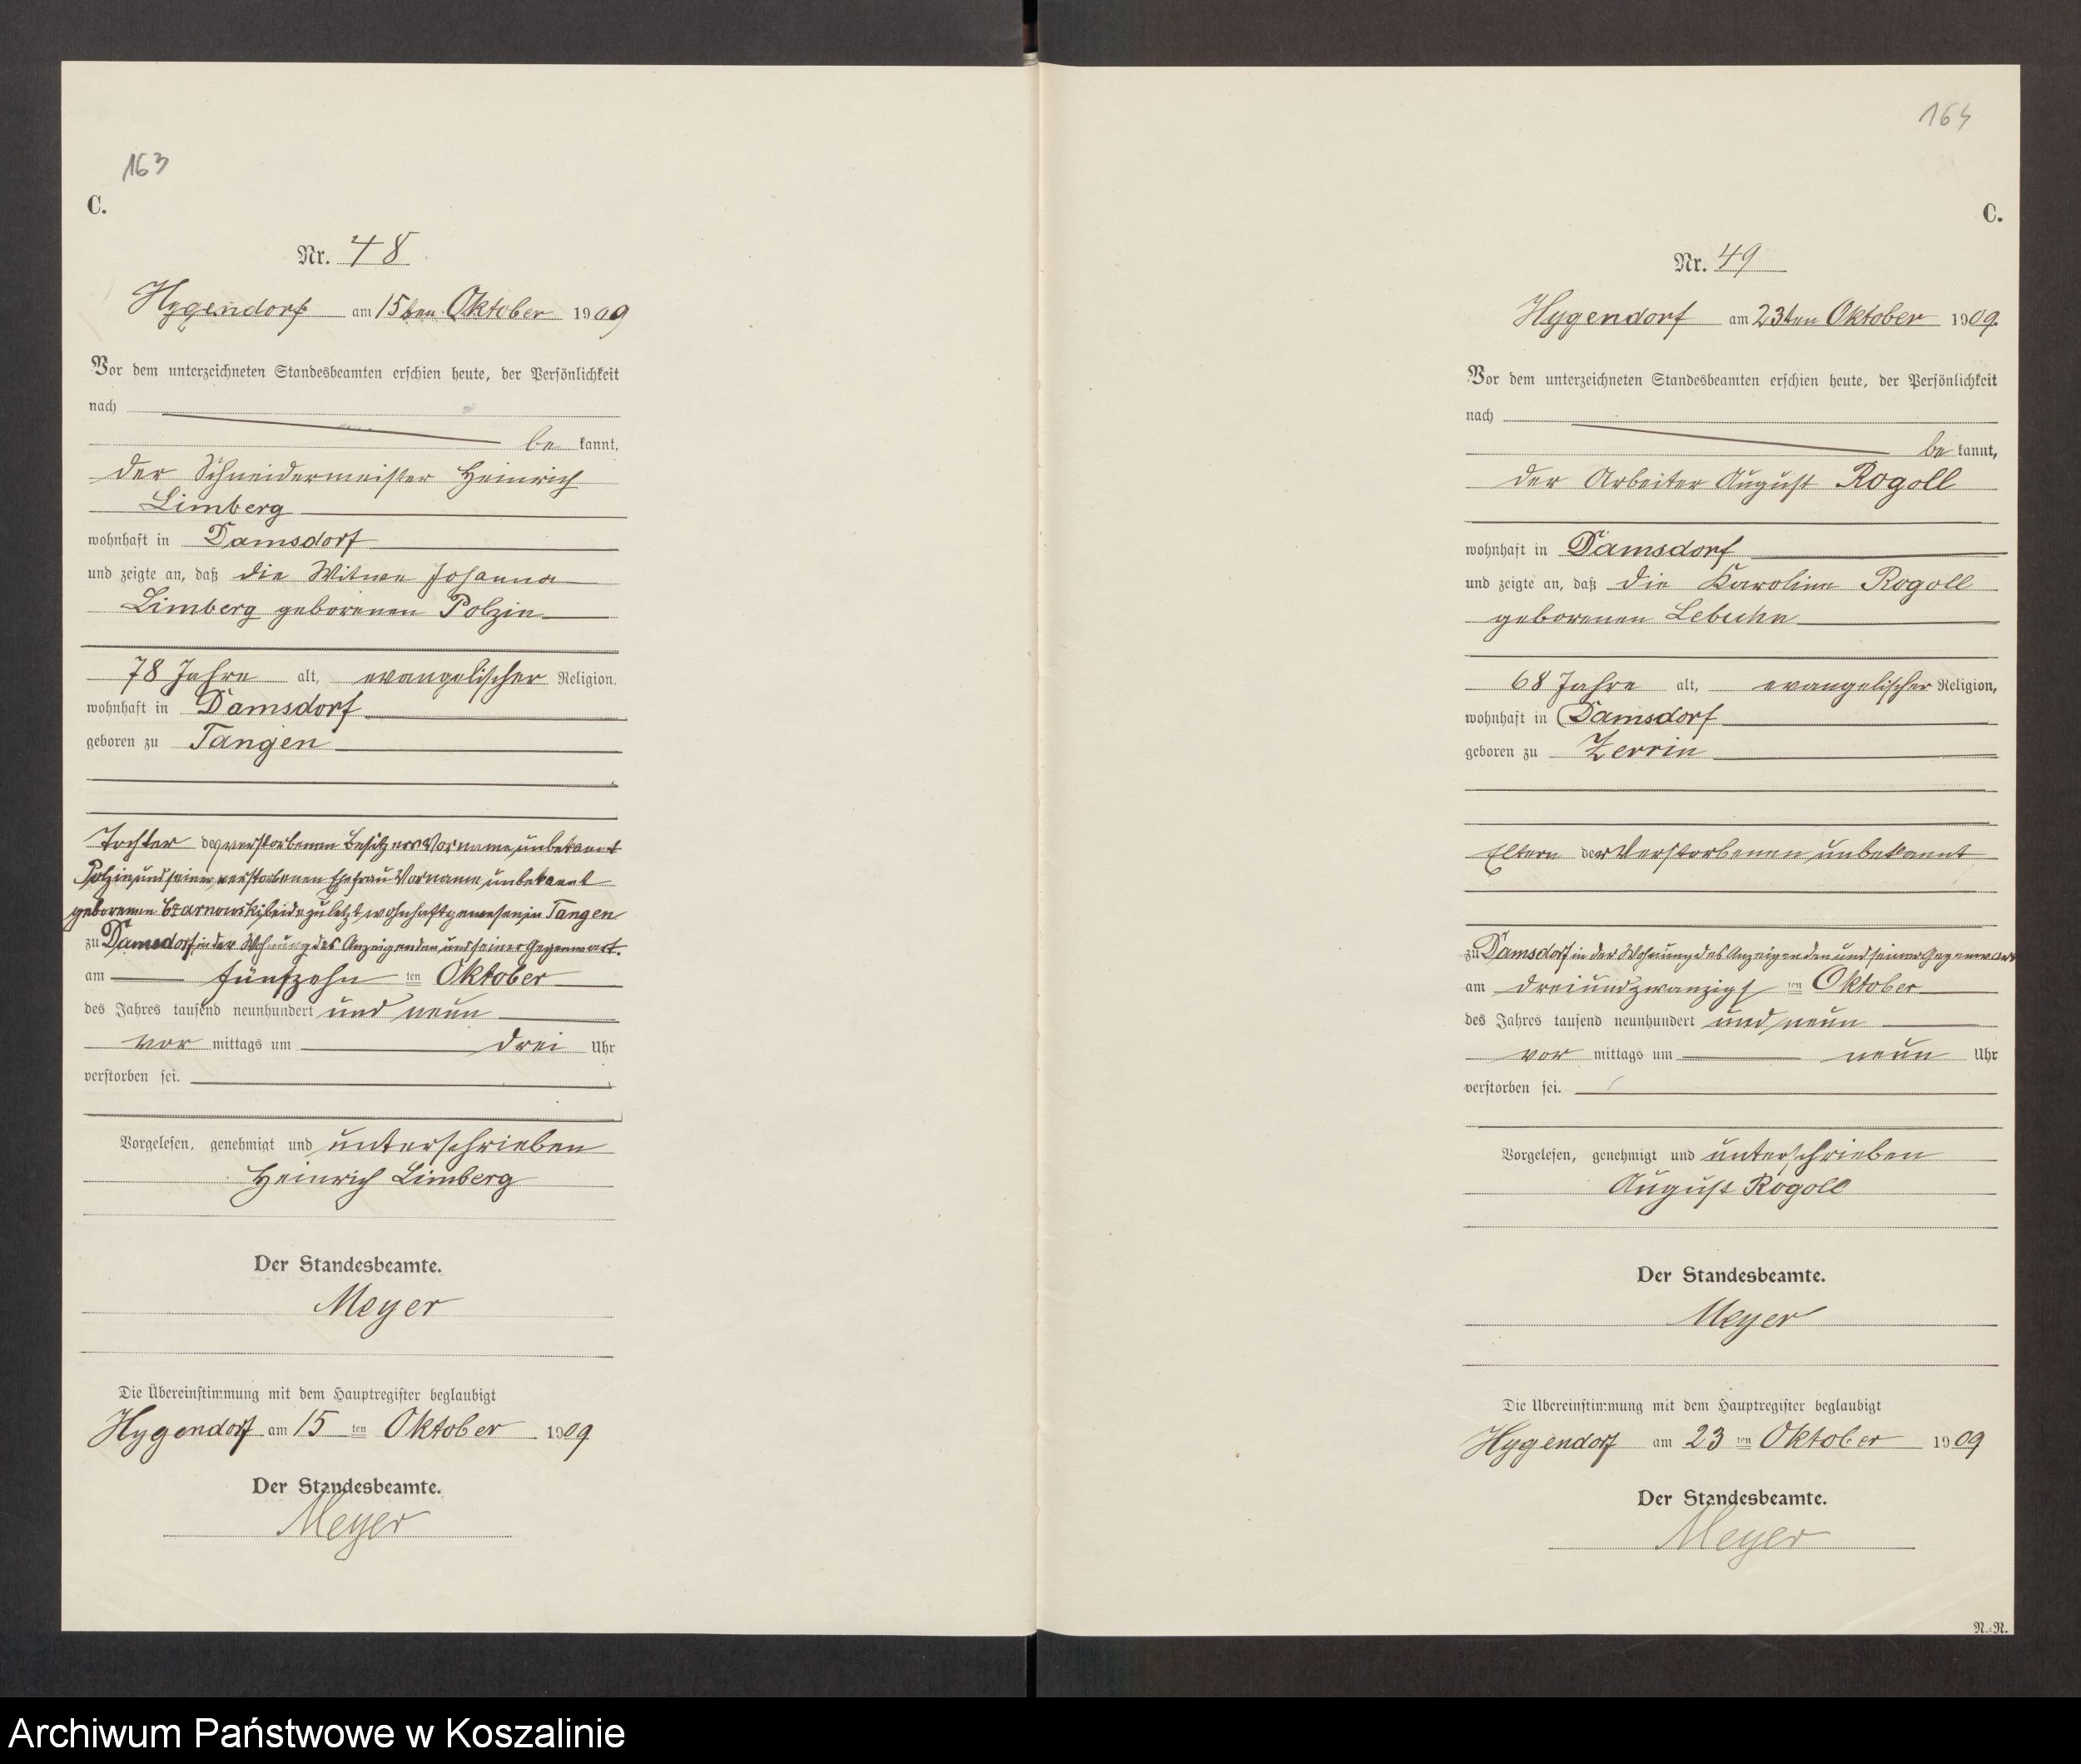 163
C.
Nr. 48
Hygendorf am 15ten Oktober 1909
Vor dem unterzeichneten Standesbeamten erschien heute, der Persönlichkeit
nach
be kannt,
der Schneidermeister Heinrich
Limberg
wohnhaft in Damsdorf
und zeigte an, daß die Witwe Johanna
Limberg geborenen Polzin
78 Jahre alt, evangelischer Religion.
wohnhaft in Damsdorf
geboren zu Tangen
Tochter des verstorbenen Besitzers Vorname unbekannt
Polzin und seiner verstorbenen Ehefrau Vorname unbekannt
geborenen Czarnowski beide zuletzt wohnhaft gewesen in Tangen
zu Damsdorf in der Wohnung des Anzeigenden und seiner Gegenwart.
am fünfzehn ten Oktober
des Jahres tausend neunhundert und neun
vor mittags um drei Uhr
verstorben sei.
Vorgelesen, genehmigt und unterschrieben
Heinrich Limberg
Der Standesbeamte.
Meyer
Die Übereinstimmung mit dem Hauptregister beglaubigt
Hygendorf am 15 ten Oktober 1909
Der Standesbeamte.
Meyer
164
C.
Nr. 49
Hygendorf am 23ten Oktober 1909.
Vor dem unterzeichneten Standesbeamten erschien heute, der Persönlichkeit
nach
be kannt,
der Arbeiter August Rogoll
wohnhaft in Damsdorf
und zeigte an, daß die Karoline Rogoll
geborenen Lebuhn
68 Jahre alt, evangelischer Religion,
wohnhaft in Damsdorf
geboren zu Zerrin
Eltern der Verstorbenen unbekannt
zu Damsdorf in der Wohnung des Anzeigenden und seiner Gegenwart
am dreiundzwanzigs ten Oktober
des Jahres tausend neunhundert und neun
vor mittags um neun Uhr
verstorben sei.
Vorgelesen, genehmigt und unterschrieben
August Rogoll
Der Standesbeamte.
Meyer
Die Übereinstimmung mit dem Hauptregister beglaubigt
Hygendorf am 23 ten Oktober 1909
Der Standesbeamte.
Meyer
N.-N.
Archiwum Państwowe w Koszalinie